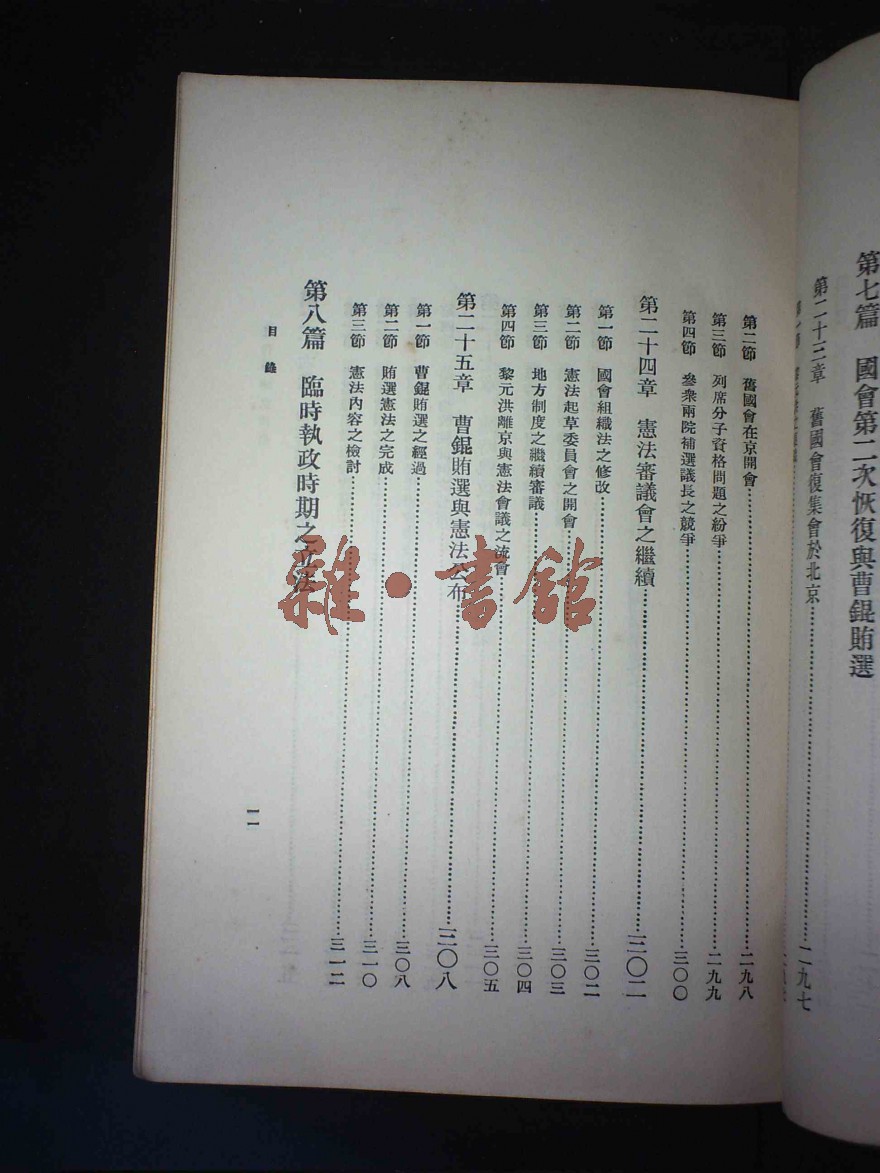 第七篇　國會第二次恢復與曹錕賄選
第二十三章　舊國會復集會於北京……二九七
第二節　舊國會在京開會……二九八
第三節　列席分子資格問題之紛爭……二九九
第四節　參衆兩院補選議長之競爭……三〇〇
第二十四章　憲法審議會之繼續……三〇二
第一節　國會組織法之修改……三〇二
第二節　憲法起草委員會之開會……三〇三
第三節　地方制度之繼續審議……三〇四
第四節　黎元洪離京與憲法會議之流會……三〇五
第二十五章　曹錕賄選與憲法公布……三〇八
第一節　曹錕賄選之經過……三〇八
第二節　賄選憲法之完成……三一〇
第三節　憲法內容之檢討……三一二
第八篇　臨時執政時期之立法
目錄
一一
雜·書館